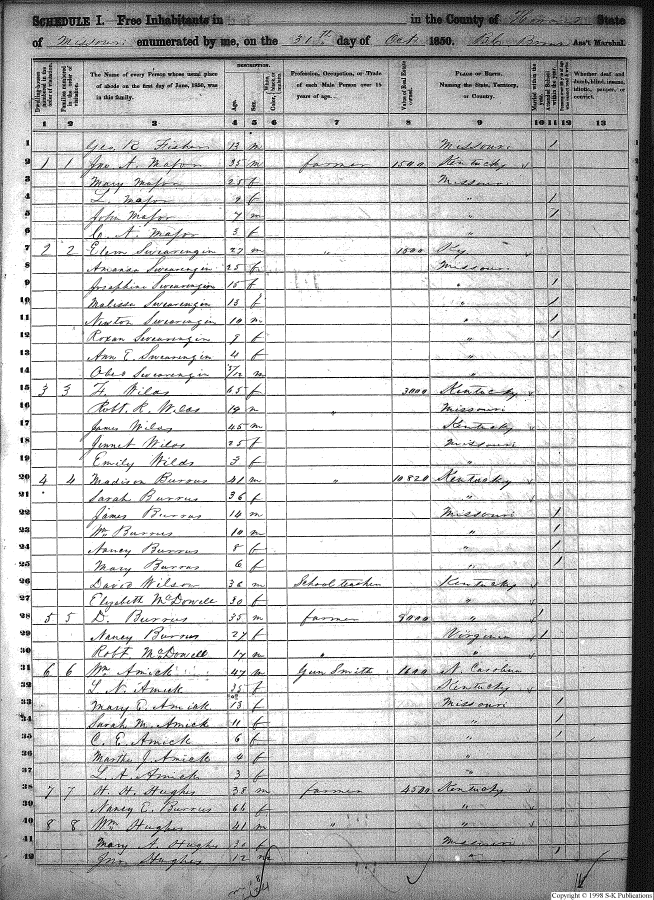 SCHEDULE I. Free Inhabitants in in the County of Howard State
of Missouri enumerated by me, on the 31th day of Oct 1850. Ass't Marshal.
Dwelling-houses numbered in the order of visitation.
Families numbered in the order of visitation.
The Name of every Person whose usual place of abode on the first day of June, 1850, was in this family.
DESCRIPTION.
Age.
Sex.
Color, White, black, or mulatto.
Profession, Occupation, or Trade of each Male Person over 15 years of age.
Value of Real Estate owned.
PLACE OF BIRTH. Naming the State, Territory, or Country.
Married within the year.
Attended School within the year.
Whether deaf and dumb, blind, insane, idiotic, pauper, or convict.
1 2 3 4 5 6 7 8 9 10 11 12 13
1 Geo. R. Fisher 13 m Missouri 1
2 1 1 Jno A. Major 35 m farmer 1500 Kentucky
3 Mary Major 25 f Missouri
4 L. Major 9 f " 1
5 John Major 7 m " 1
6 C. A. Major 3 f "
7 2 2 Elem Swearengin 27 m " 1500 Ky.
8 Amanda Swearengin 25 f Missouri
9 Josephine Swearengin 15 f " 1
10 Malissa Swearengin 13 f " 1
11 Newton Swearengin 10 m " 1
12 Roxan Swearengin 8 f " 1
13 Ann E. Swearengin 4 f "
14 Swearengin /12 m "
15 3 3 F. Wilds 65 f 3000 Kentucky
16 Robt. R. Wilds 19 m " Missouri
17 James Wilds 45 m Kentucky
18 Jennet Wilds 25 f Missouri
19 Emily Wilds 3 f "
20 4 4 Madison Burrus 41 m " 10820 Kentucky
21 Sarah Burrus 36 f "
22 James Burrus 14 m Missouri 1
23 Wm Burrus 10 m " 1
24 Nancy Burrus 8 f " 1
25 Mary Burrus 6 f " 1
26 David Wilson 36 m School teacher Kentucky
27 Elizabeth McDowell 30 f "
28 5 5 D. Burrus 35 m farmer 8000 " 1
29 Nancy Burrus 27 f Virginia 1
30 Robt McDowell 17 m " "
31 6 6 Wm Amick 47 m Gun Smith 1600 N. Carolina
32 L. N. Amick 35 f Kentucky
33 Mary E. Amick 13 f Missouri 1
34 Sarah M. Amick 11 f " 1
35 C. E. Amick 6 f " 1
36 Martha J. Amick 4 f "
37 L. A. Amick 3 f "
38 7 7 H. H. Hughes 38 m farmer 4500 Kentucky
39 Nancy E. Burrus 66 f "
40 8 8 Wm Hughes 41 m " "
41 Mary A. Hughes 30 f Missouri
42 Jno. Hughes 12 m "
Copyright © 1998 S-K Publications